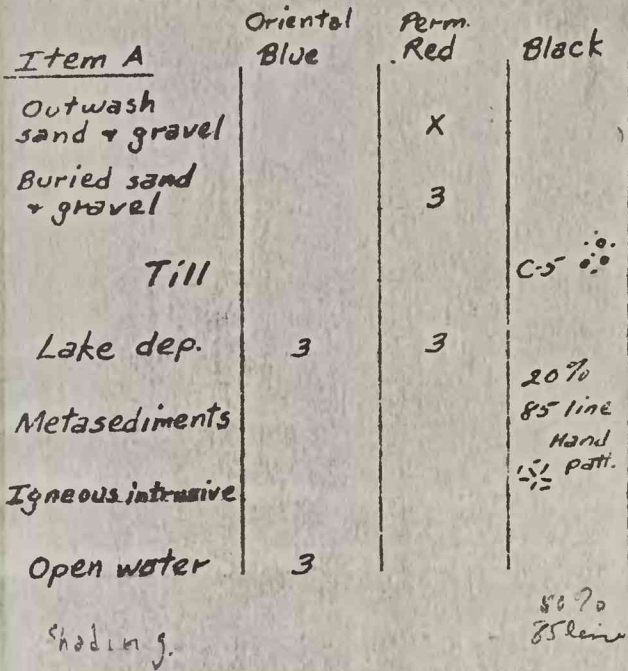 Oriental Blue Perm. Red Black
Item A
Outwash
sand & gravel X
Buried sand
& gravel 3
Till C-5
Lake dep. 3 3
20%
Metasediments 85 line
Hand
patt.
Igneous intrusive
Open water 3
50%
Shading. 85 line